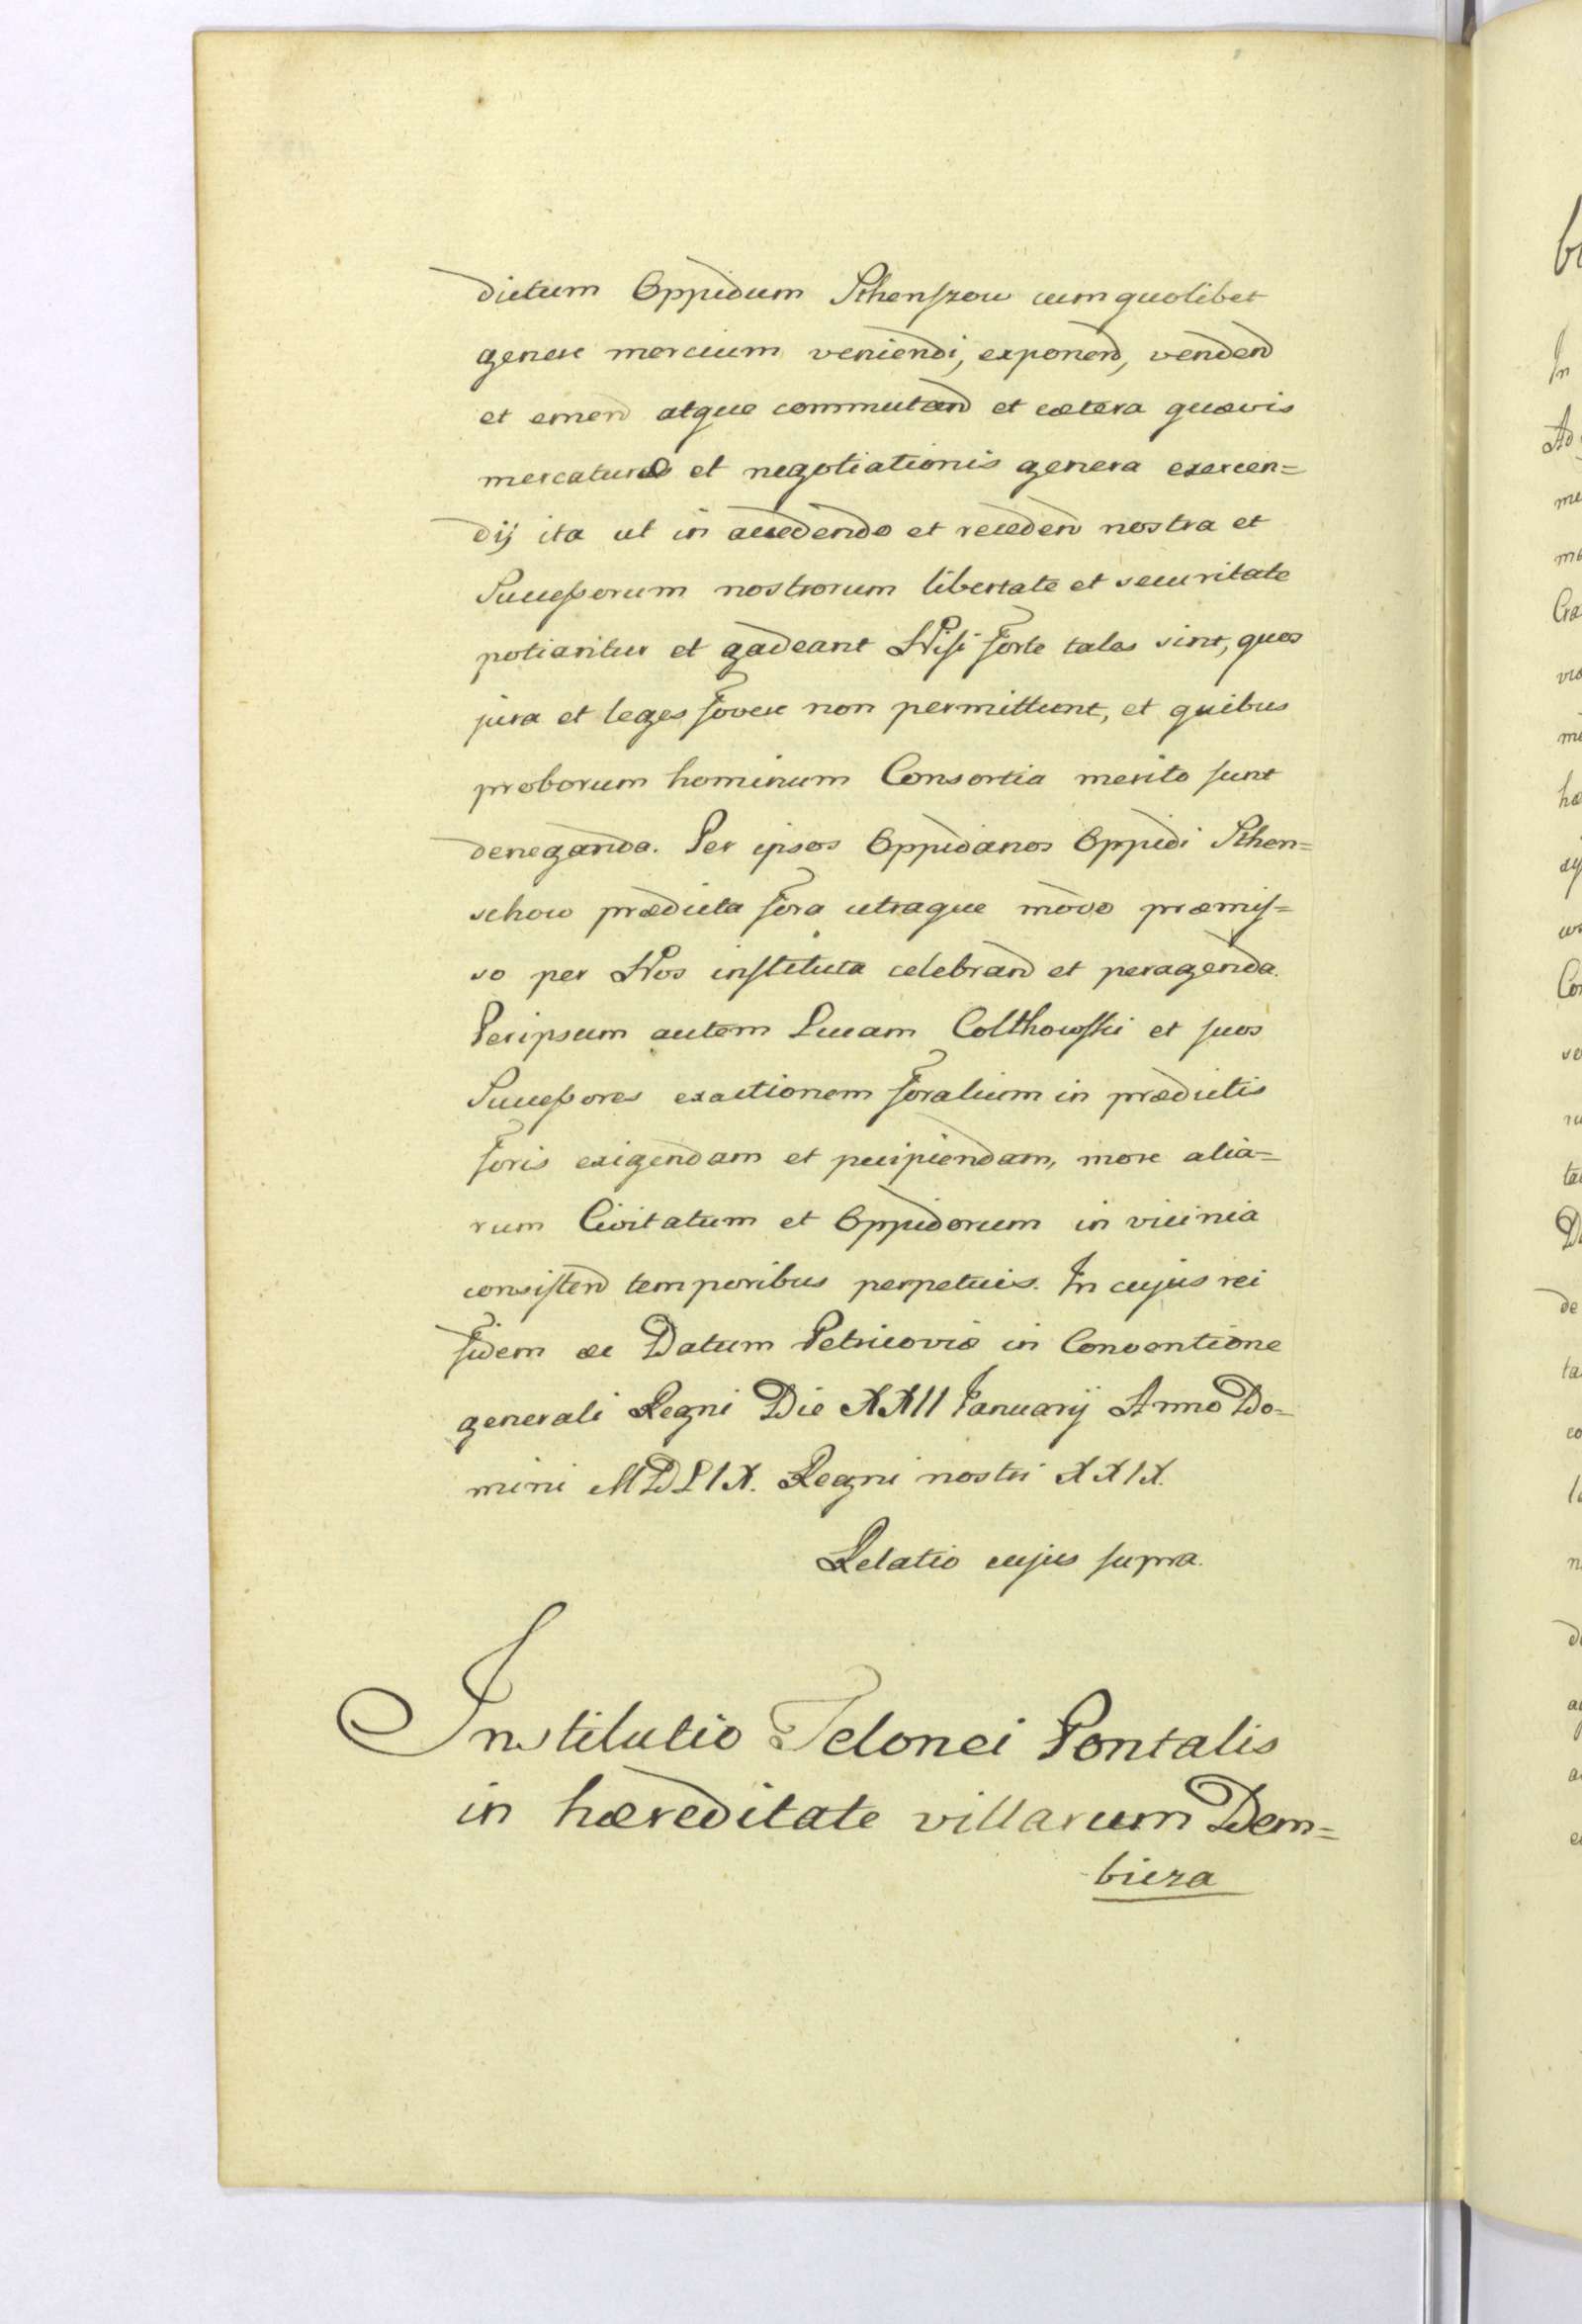 dictum Oppidum Sthenszow cum quolibet
genere mercium veniendi, exponend, vendend
et emend atque commutand et cætera quævis
mercaturæ et negotiationis genera exercen=
dij ita ut in accedendo et recedend nostra et
Successorum nostrorum libertate et securitate
potiantur et gadeant Nisi forte tales sint, quos
jura et leges fovere non permittunt, et quibus
proborum hominum Consortia merito sunt
deneganda. Per ipsos Oppidanos Oppidi Sthen=
schow prædicta fora utraque modo præmis=
so per Nos instituta celebrand et peragenda.
Per ipsum autem Lucam Colthowski et suos
Successores exactionem foralium in prædictis
foris exigendam et percipiendam, more alia=
rum Civitatum et Oppidorum in vicinia
consistend temporibus perpetuis. In cujus rei
fidem &c Datum Petricoviæ in Conventione
generali Regni Die XXII Januarij Anno Do=
mini MDLIX. Regni nostri XXIX.
Relatio cujus supra.
Institutio Telonei Pontalis
in hæreditate villarum Dem=
bicza